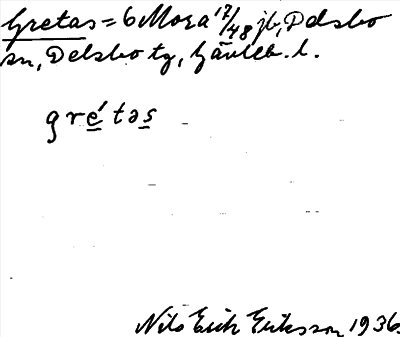 Gretas = 6 Mora 17/48 jb, Delsbo
sn, Delsbo tg, Gävleb. l.
gre̲´təs̲
Nils Erik Eriksson 1936.